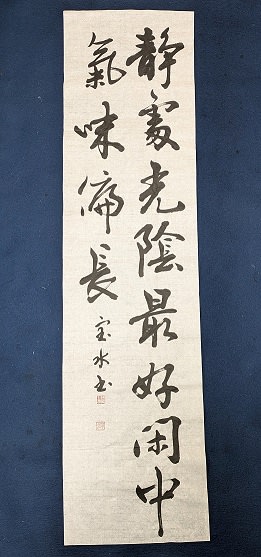 静處光陰最好閑中
氣味偏長
宝水书